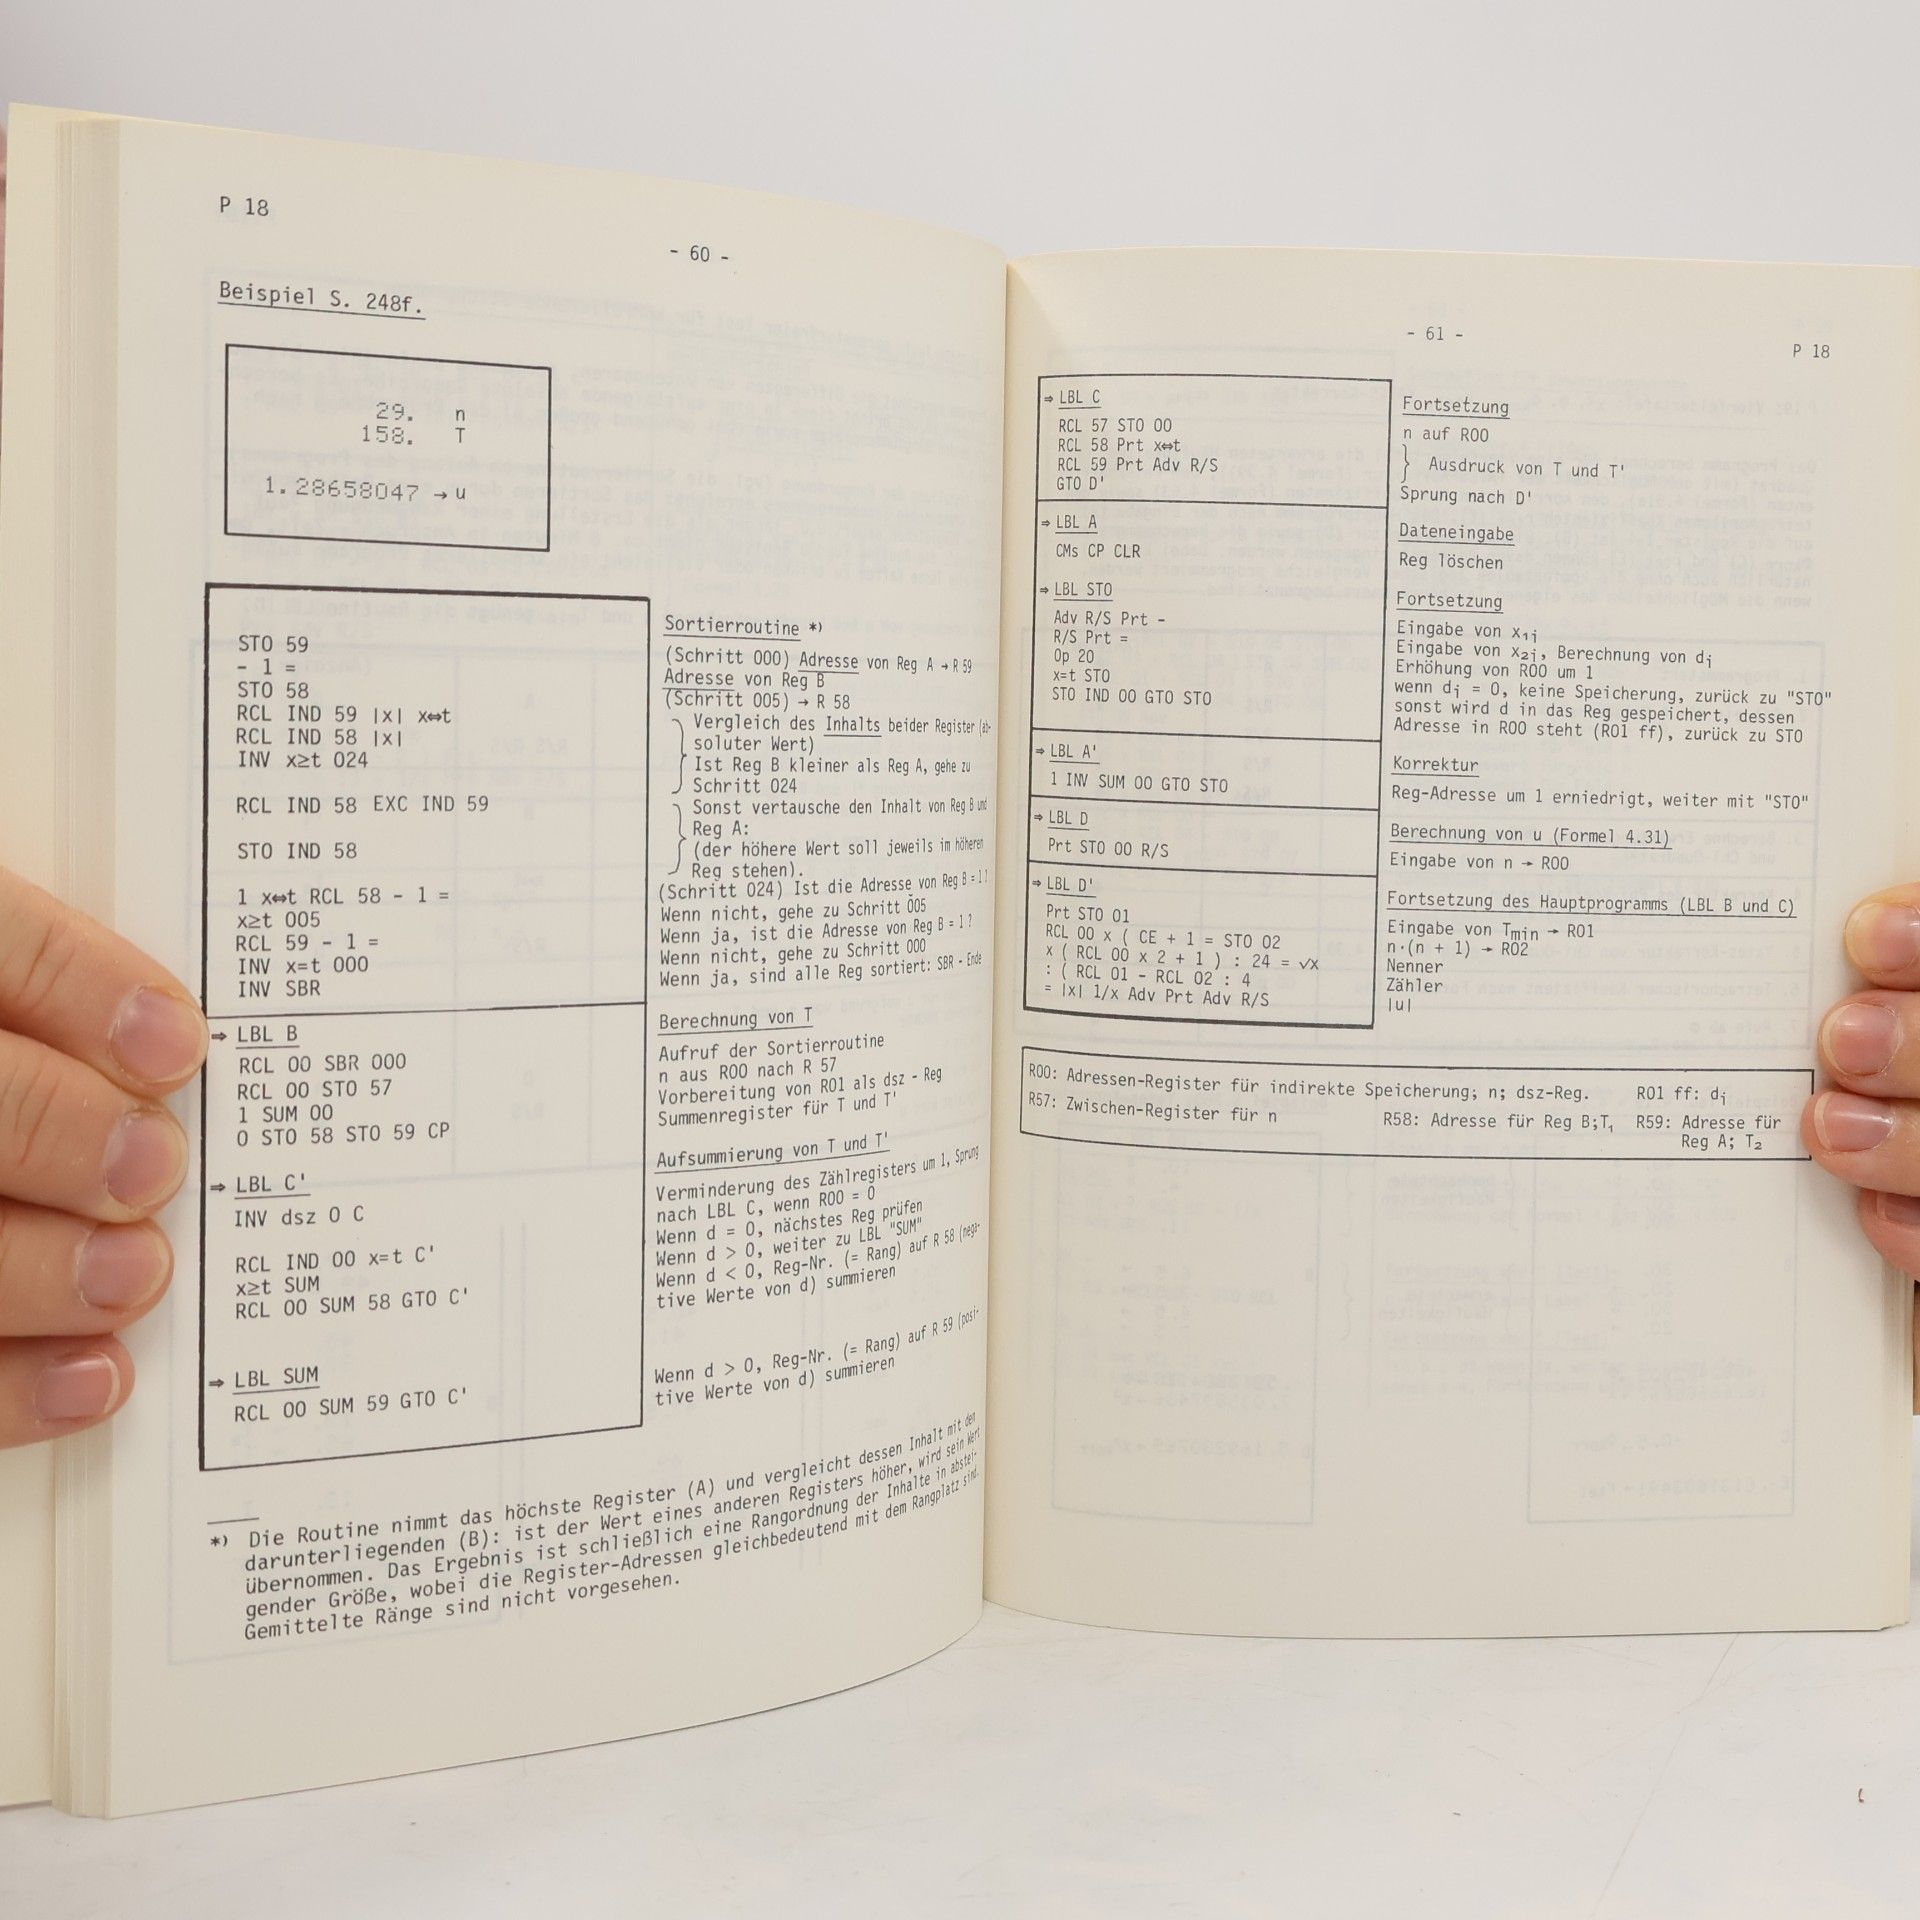 P 18
- 60 -
Beispiel S. 248f.
29. n
158. T
1.28658047 → u
STO 59
- 1 =
STO 58
RCL IND 59 |x| x⇔t
RCL IND 58 |x|
INV x≥t 024
RCL IND 58 EXC IND 59
STO IND 58
1 x⇔t RCL 58 - 1 =
x≥t 005
RCL 59 - 1 =
INV x=t 000
INV SBR
Sortierroutine *)
(Schritt 000) Adresse von Reg A → R 59
Adresse von Reg B
(Schritt 005) → R 58
Vergleich des Inhalts beider Register (ab-
soluter Wert)
Ist Reg B kleiner als Reg A, gehe zu
Schritt 024
Sonst vertausche den Inhalt von Reg B und
Reg A:
(der höhere Wert soll jeweils im höheren
Reg stehen).
(Schritt 024) Ist die Adresse von Reg B = 1 ?
Wenn nicht, gehe zu Schritt 005
Wenn ja, ist die Adresse von Reg B = 1 ?
Wenn nicht, gehe zu Schritt 000
Wenn ja, sind alle Reg sortiert: SBR - Ende
⇒ LBL B
RCL 00 SBR 000
RCL 00 STO 57
1 SUM 00
0 STO 58 STO 59 CP
Berechnung von T
Aufruf der Sortierroutine
n aus R00 nach R 57
Vorbereitung von R01 als dsz - Reg
Summenregister für T und T'
⇒ LBL C'
INV dsz 0 C
RCL IND 00 x=t C'
x≥t SUM
RCL 00 SUM 58 GTO C'
Aufsummierung von T und T'
Verminderung des Zählregisters um 1, Sprung
nach LBL C, wenn R00 = 0
Wenn d = 0, nächstes Reg prüfen
Wenn d > 0, weiter zu LBL "SUM"
Wenn d < 0, Reg-Nr. (= Rang) auf R 58 (nega-
tive Werte von d) summieren
⇒ LBL SUM
RCL 00 SUM 59 GTO C'
Wenn d > 0, Reg-Nr. (= Rang) auf R 59 (posi-
tive Werte von d) summieren
*) Die Routine nimmt das höchste Register (A) und vergleicht dessen Inhalt mit den
darunterliegenden (B): ist der Wert eines anderen Registers höher, wird sein Wert
übernommen. Das Ergebnis ist schließlich eine Rangordnung der Inhalte in abstei-
gender Größe, wobei die Register-Adressen gleichbedeutend mit dem Rangplatz sind.
Gemittelte Ränge sind nicht vorgesehen.
- 61 -
P 18
⇒ LBL C
RCL 57 STO 00
RCL 58 Prt x⇔t
RCL 59 Prt Adv R/S
GTO D'
Fortsetzung
n auf R00
Ausdruck von T und T'
Sprung nach D'
⇒ LBL A
CMs CP CLR
Dateneingabe
Reg löschen
⇒ LBL STO
Adv R/S Prt -
R/S Prt =
Op 20
x=t STO
STO IND 00 GTO STO
Fortsetzung
Eingabe von x1j
Eingabe von x2j, Berechnung von di
Erhöhung von R00 um 1
wenn di = 0, keine Speicherung, zurück zu "STO"
sonst wird d in das Reg gespeichert, dessen
Adresse in R00 steht (R01 ff), zurück zu STO
⇒ LBL A'
1 INV SUM 00 GTO STO
Korrektur
Reg-Adresse um 1 erniedrigt, weiter mit "STO"
⇒ LBL D
Prt STO 00 R/S
Berechnung von u (Formel 4.31)
Eingabe von n → R00
⇒ LBL D'
Prt STO 01
RCL 00 x ( CE + 1 = STO 02
x ( RCL 00 x 2 + 1 ) : 24 = √x
: ( RCL 01 - RCL 02 : 4
= |x| 1/x Adv Prt Adv R/S
Fortsetzung des Hauptprogramms (LBL B und C)
Eingabe von Tmin → R01
n·(n + 1) → R02
Nenner
Zähler
|u|
R00: Adressen-Register für indirekte Speicherung; n; dsz-Reg. R01 ff: di
R57: Zwischen-Register für n R58: Adresse für Reg B;T1 R59: Adresse für
Reg A; T2